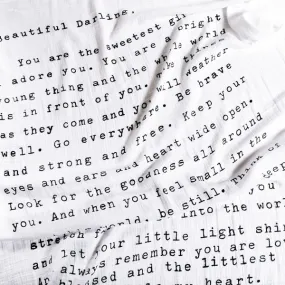 Beautiful Darling.
You are the sweetest
I adore you. You are a bright
young thing and the whole world
is in front of you.
as they come and you will weather
well. Go everywhere. Be brave
and strong and free. Keep your
eyes and ears and heart wide open.
Look for the goodness all around
you. And when you feel small in the
be still. Think of
into the world
and let your little light shin
always remember you are lov
and the littlest
my heart.